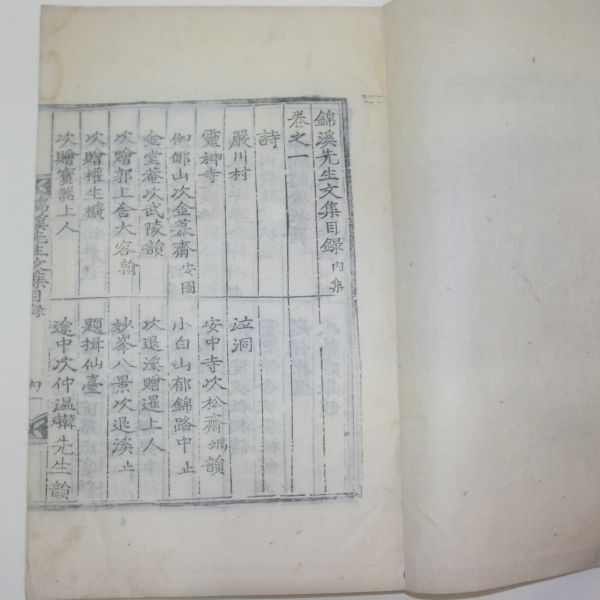 錦溪先生文集目録 内集
卷之一
詩
嚴川村
泣洞
靈神寺
安中寺次松齋堣韻
伽倻山次金慕齋安國
小白山郁錦路中止
金堂菴次武陵韻
次退溪贈暹上人
次贈郭上舍大容翰
妙峯八景次退溪止
次贈權生擴
題揖仙臺
次贈寶器上人
途中次仲温 先生韻
錦溪先生文集目録 内